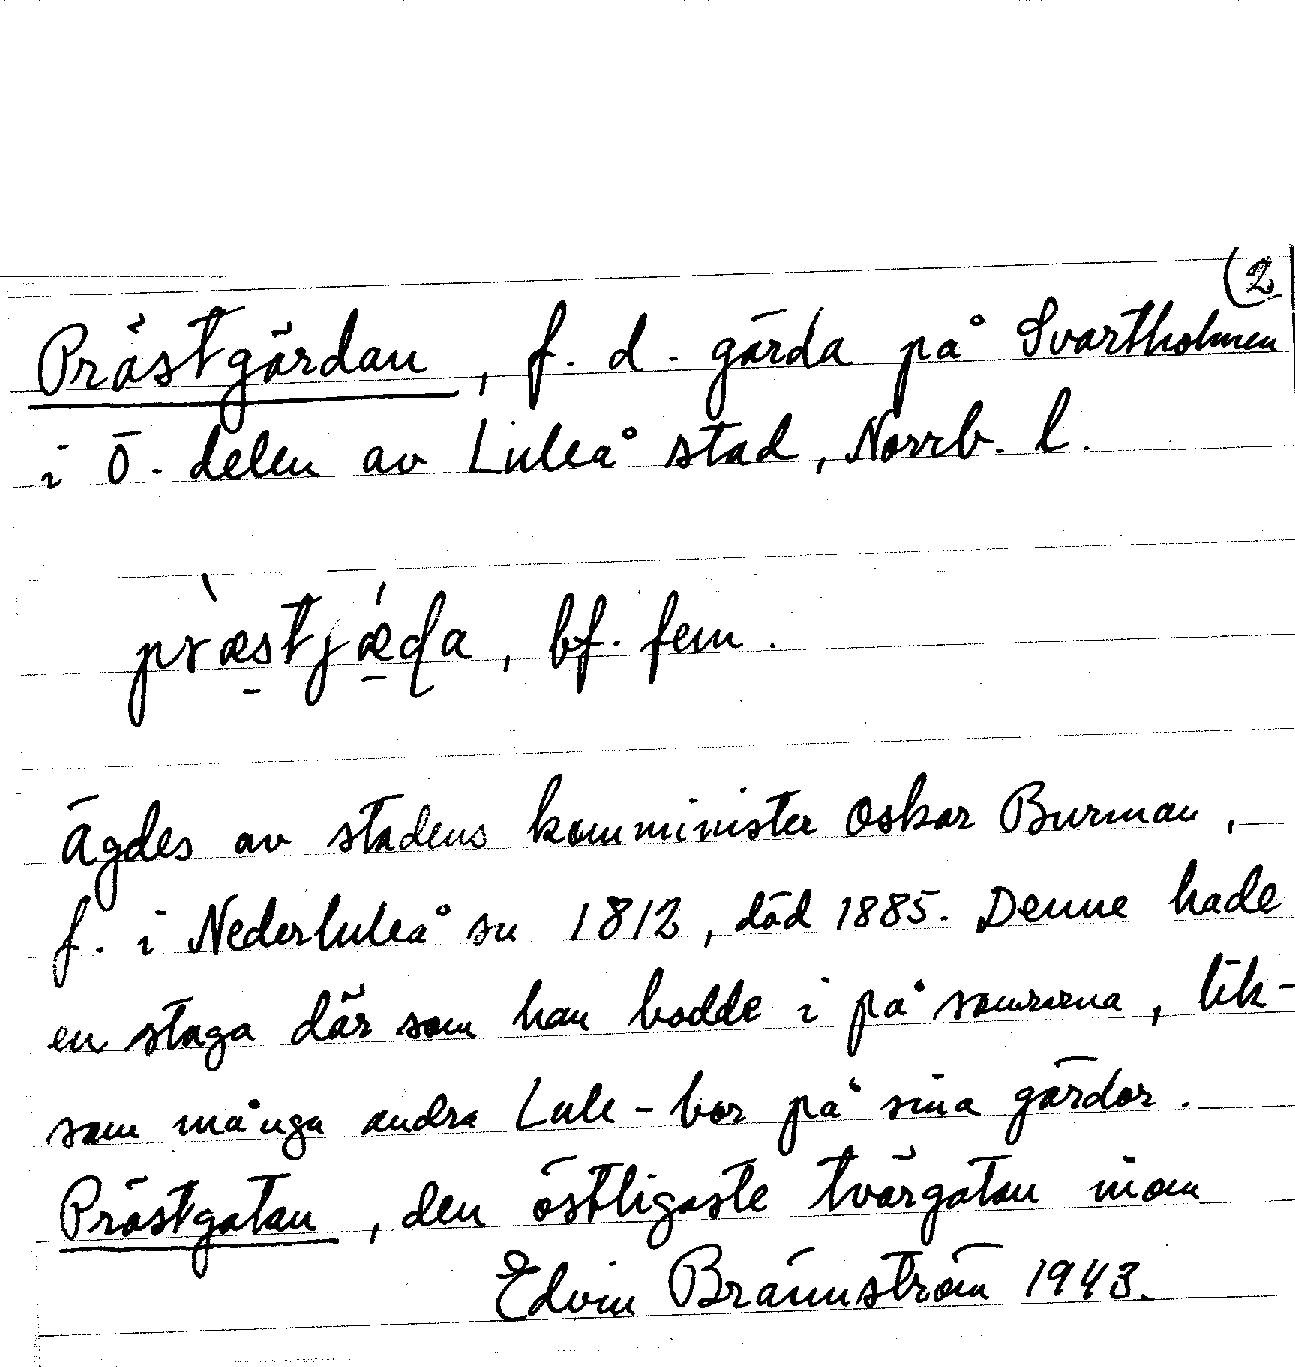 (2
Prästgärdan, f. d. gärda på Svartholmen
i Ö. delen av Luleå stad, Norrb. l.
præ̱stjæ̱ɖa, bf. fem.
Ägdes av stadens komminister Oskar Burman,
f. i Nederluleå sn 1812, död 1885. Denne hade
en staga där som han bodde i på somrarna, lik-
som många andra Lule-bor på sina gärdor.
Prästgatan, den östligaste tvärgatan inom
Edvin Brännström 1943.